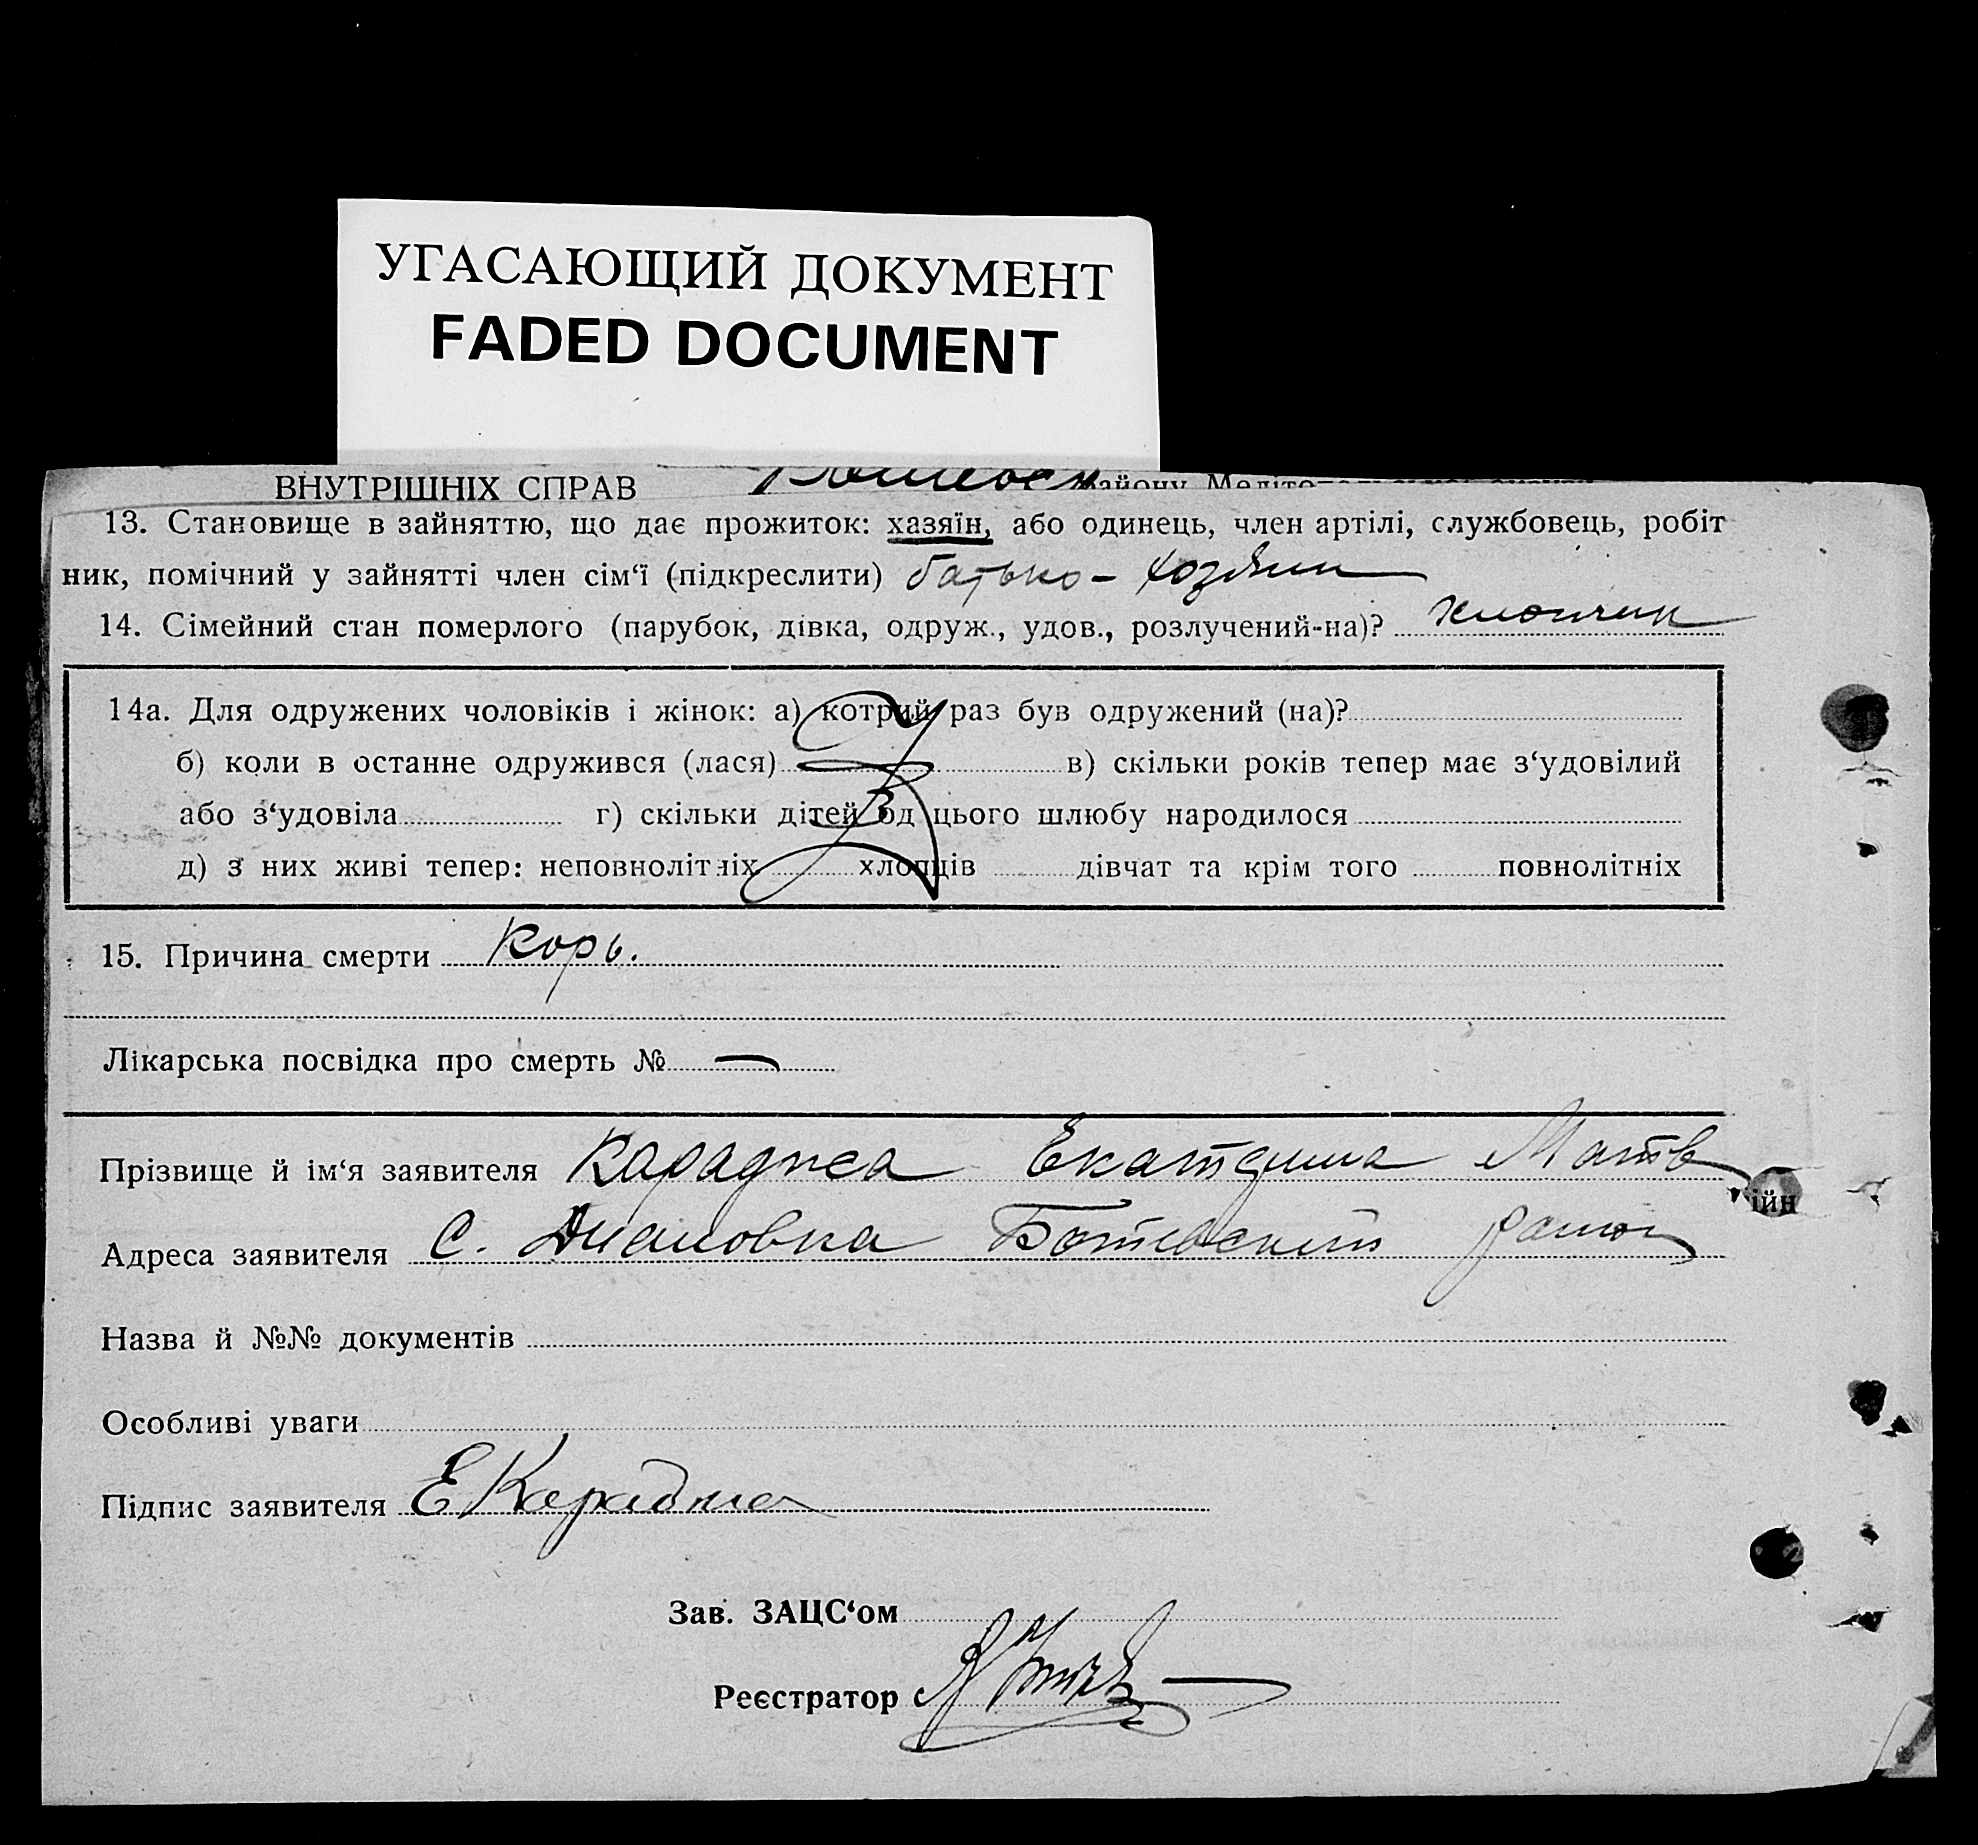 УГАСАЮЩИЙ ДОКУМЕНТ
FADED DOCUMENT
ВНУТРІШНІХ СПРАВ району
13. Становище в зайняттю, що дає прожиток: хазяїн, або одинець, член артілі, службовець, робіт
ник, помічний у зайнятті член сім‘ї (підкреслити) батько - хозяин
14. Сімейний стан померлого (парубок, дівка, одруж., удов., розлучений-на)? хлопчик
14а. Для одружених чоловіків і жінок: а) котрий раз був одружений (на)?
б) коли в останнє одружився (лася) в) скільки років тепер має з‘удовілий
або з‘удовіла г) скільки дітей од цього шлюбу народилося
д) з них живі тепер: неповнолітніх хлопців дівчат та крім того повнолітніх
15. Причина смерти Корь.
Лікарська посвідка про смерть № —
Прізвище й ім‘я заявителя Караджа Екатерина Матв
ійн
Адреса заявителя С. Діановка Ботиевский район
Назва й №№ документів
Особливі уваги
Підпис заявителя ЕКараджа
Зав. ЗАЦС‘ом
Реєстратор